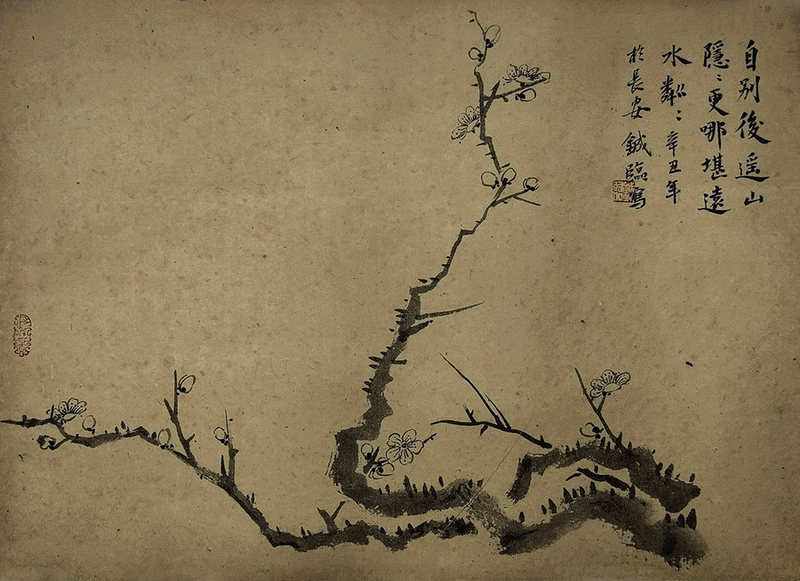 自別後遥山
隱〻更哪堪遠
水粼〻辛丑年
於長安鉞臨寫